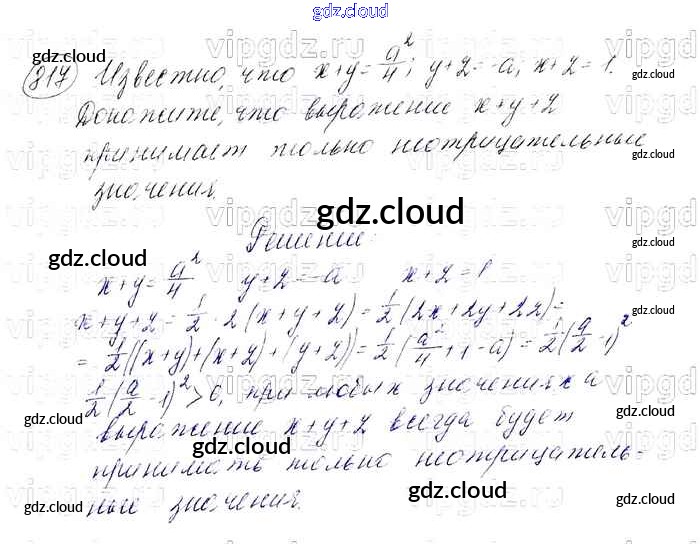 gdz.cloud
817 Известно, что x+y = a²/4; y+z = -a; x+z = 1.
Докажите, что выражение x+y+z
принимает только неотрицательные
значения.
Решение:
x+y = a²/4 y+z = -a x+z = 1
x+y+z = 1/2 · 2(x+y+z) = 1/2(2x+2y+2z) =
= 1/2((x+y)+(x+z)+(y+z)) = 1/2(a²/4+1-a) = 1/2(a/2-1)²
1/2(a/2-1)² > 0, при любых значениях a
выражение x+y+z всегда будет
принимать только неотрицатель-
ные значения.
gdz.cloud
gdz.cloud
gdz.cloud
gdz.cloud
gdz.cloud
gdz.cloud
gdz.cloud
gdz.cloud
gdz.cloud
gdz.cloud
gdz.cloud
gdz.cloud